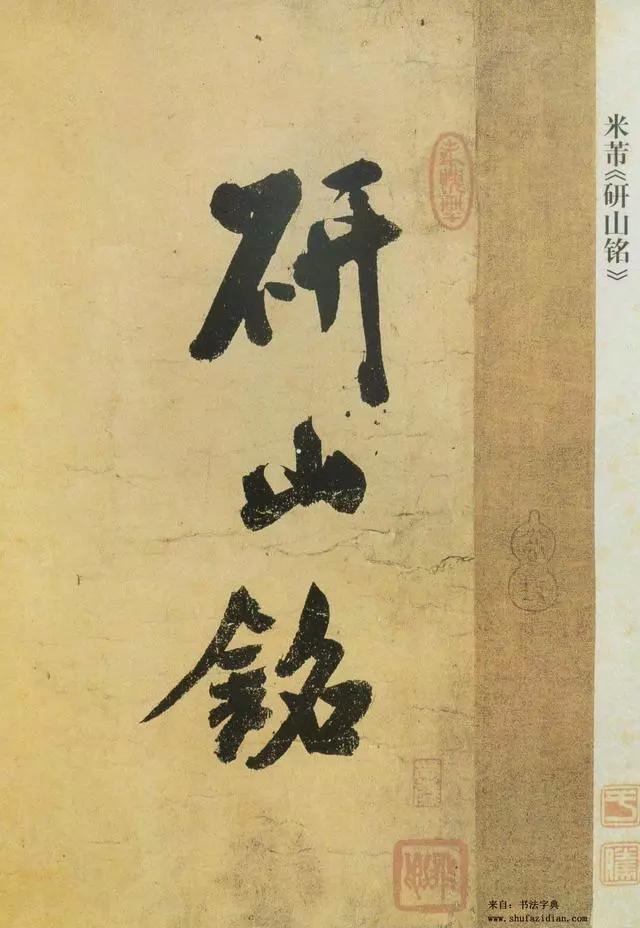 米芾《研山铭》
研山銘
来自：书法字典
www.shufazidian.com